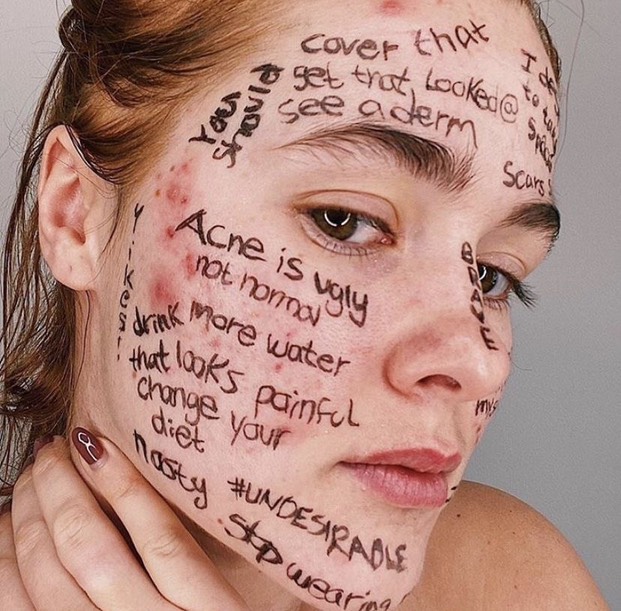 cover that
get that looked @
see a derm
You
should
Scars
BRAVE
Acne is ugly
not normal
drink more water
that looks painful
change your
diet
nasty
#UNDESIRABLE
stop wearing